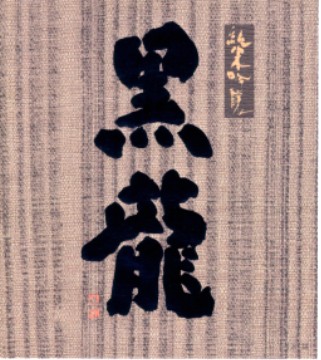 純米吟醸
黒龍